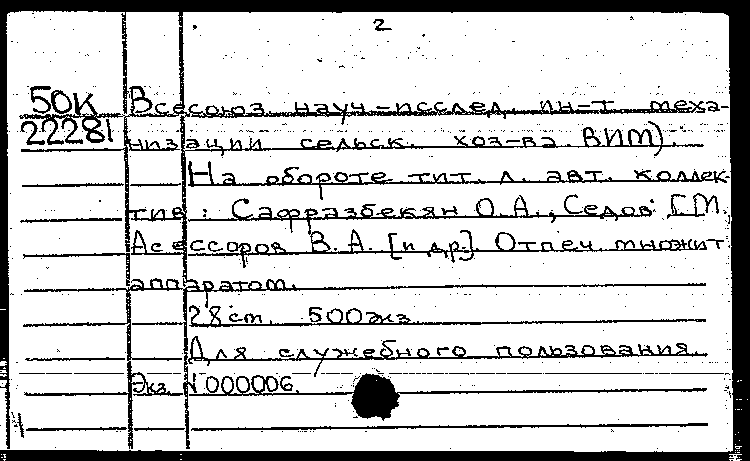 2
50К Всесоюз. науч-исслед. ин-т меха-
22281 низации сельск. хоз-ва ВИМ).
На обороте тит. л. авт. коллек-
тив: Сафразбекян О.А., Седов Г.М.
Асессоров В.А. [и др.]. Отпеч. множит
аппаратом.
28 ст. 500 экз
Для служебного пользования.
Экз. N 000006.